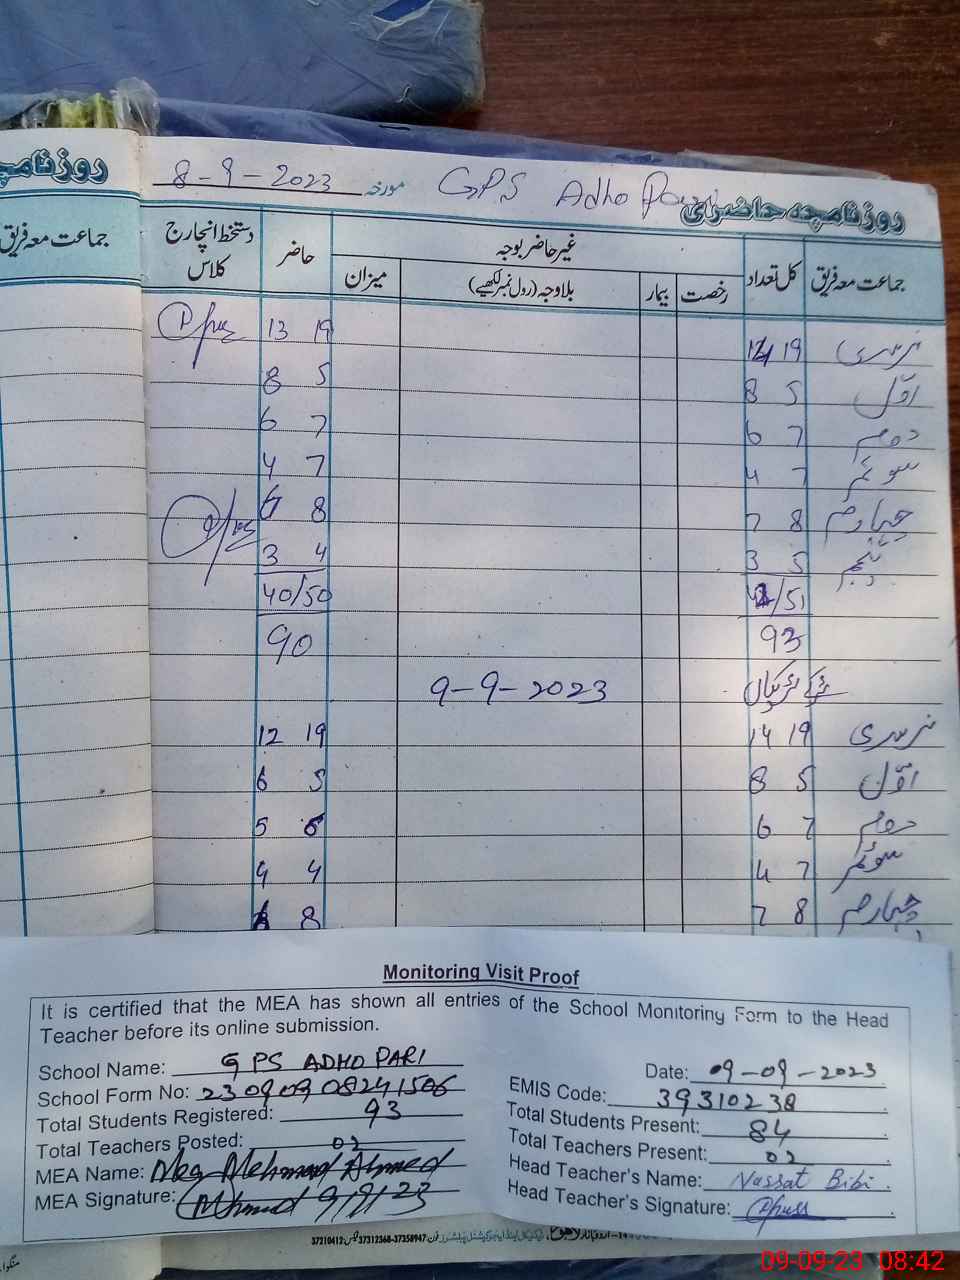 روزنامچہ
8-9-2023 مورخہ GPS Adho Pari روزنامچہ حاضری
جماعت معہ فریق
جماعت معہ فریق کل تعداد غیر حاضر بوجہ حاضر دستخط انچارج کلاس
رخصت بیمار بلاوجہ (رول نمبر لکھیے) میزان
نرسری 14 19 13 19
اوّل 8 5 8 5
دوم 6 7 6 7
سوئم 4 7 4 7
چہارم 7 8 6 8
پنجم 3 5 3 4
42/51 40/50
93 90
9-9-2023
نرسری 14 19 12 19
اوّل 8 5 6 5
دوم 6 7 5 6
سوئم 4 7 4 4
چہارم 7 8 8
Monitoring Visit Proof
It is certified that the MEA has shown all entries of the School Monitoring Form to the Head
Teacher before its online submission.
School Name: GPS ADHO PARI
Date: 09-09-2023
School Form No: 23090908241506
EMIS Code: 39310238
Total Students Registered: 93
Total Students Present: 84
Total Teachers Posted: 02
Total Teachers Present: 02
MEA Name: Mehmood Ahmed
Head Teacher's Name: Nussat Bibi
MEA Signature: 9/9/23
Head Teacher's Signature:
37210412 37312368-37358947
09-09-23 08:42